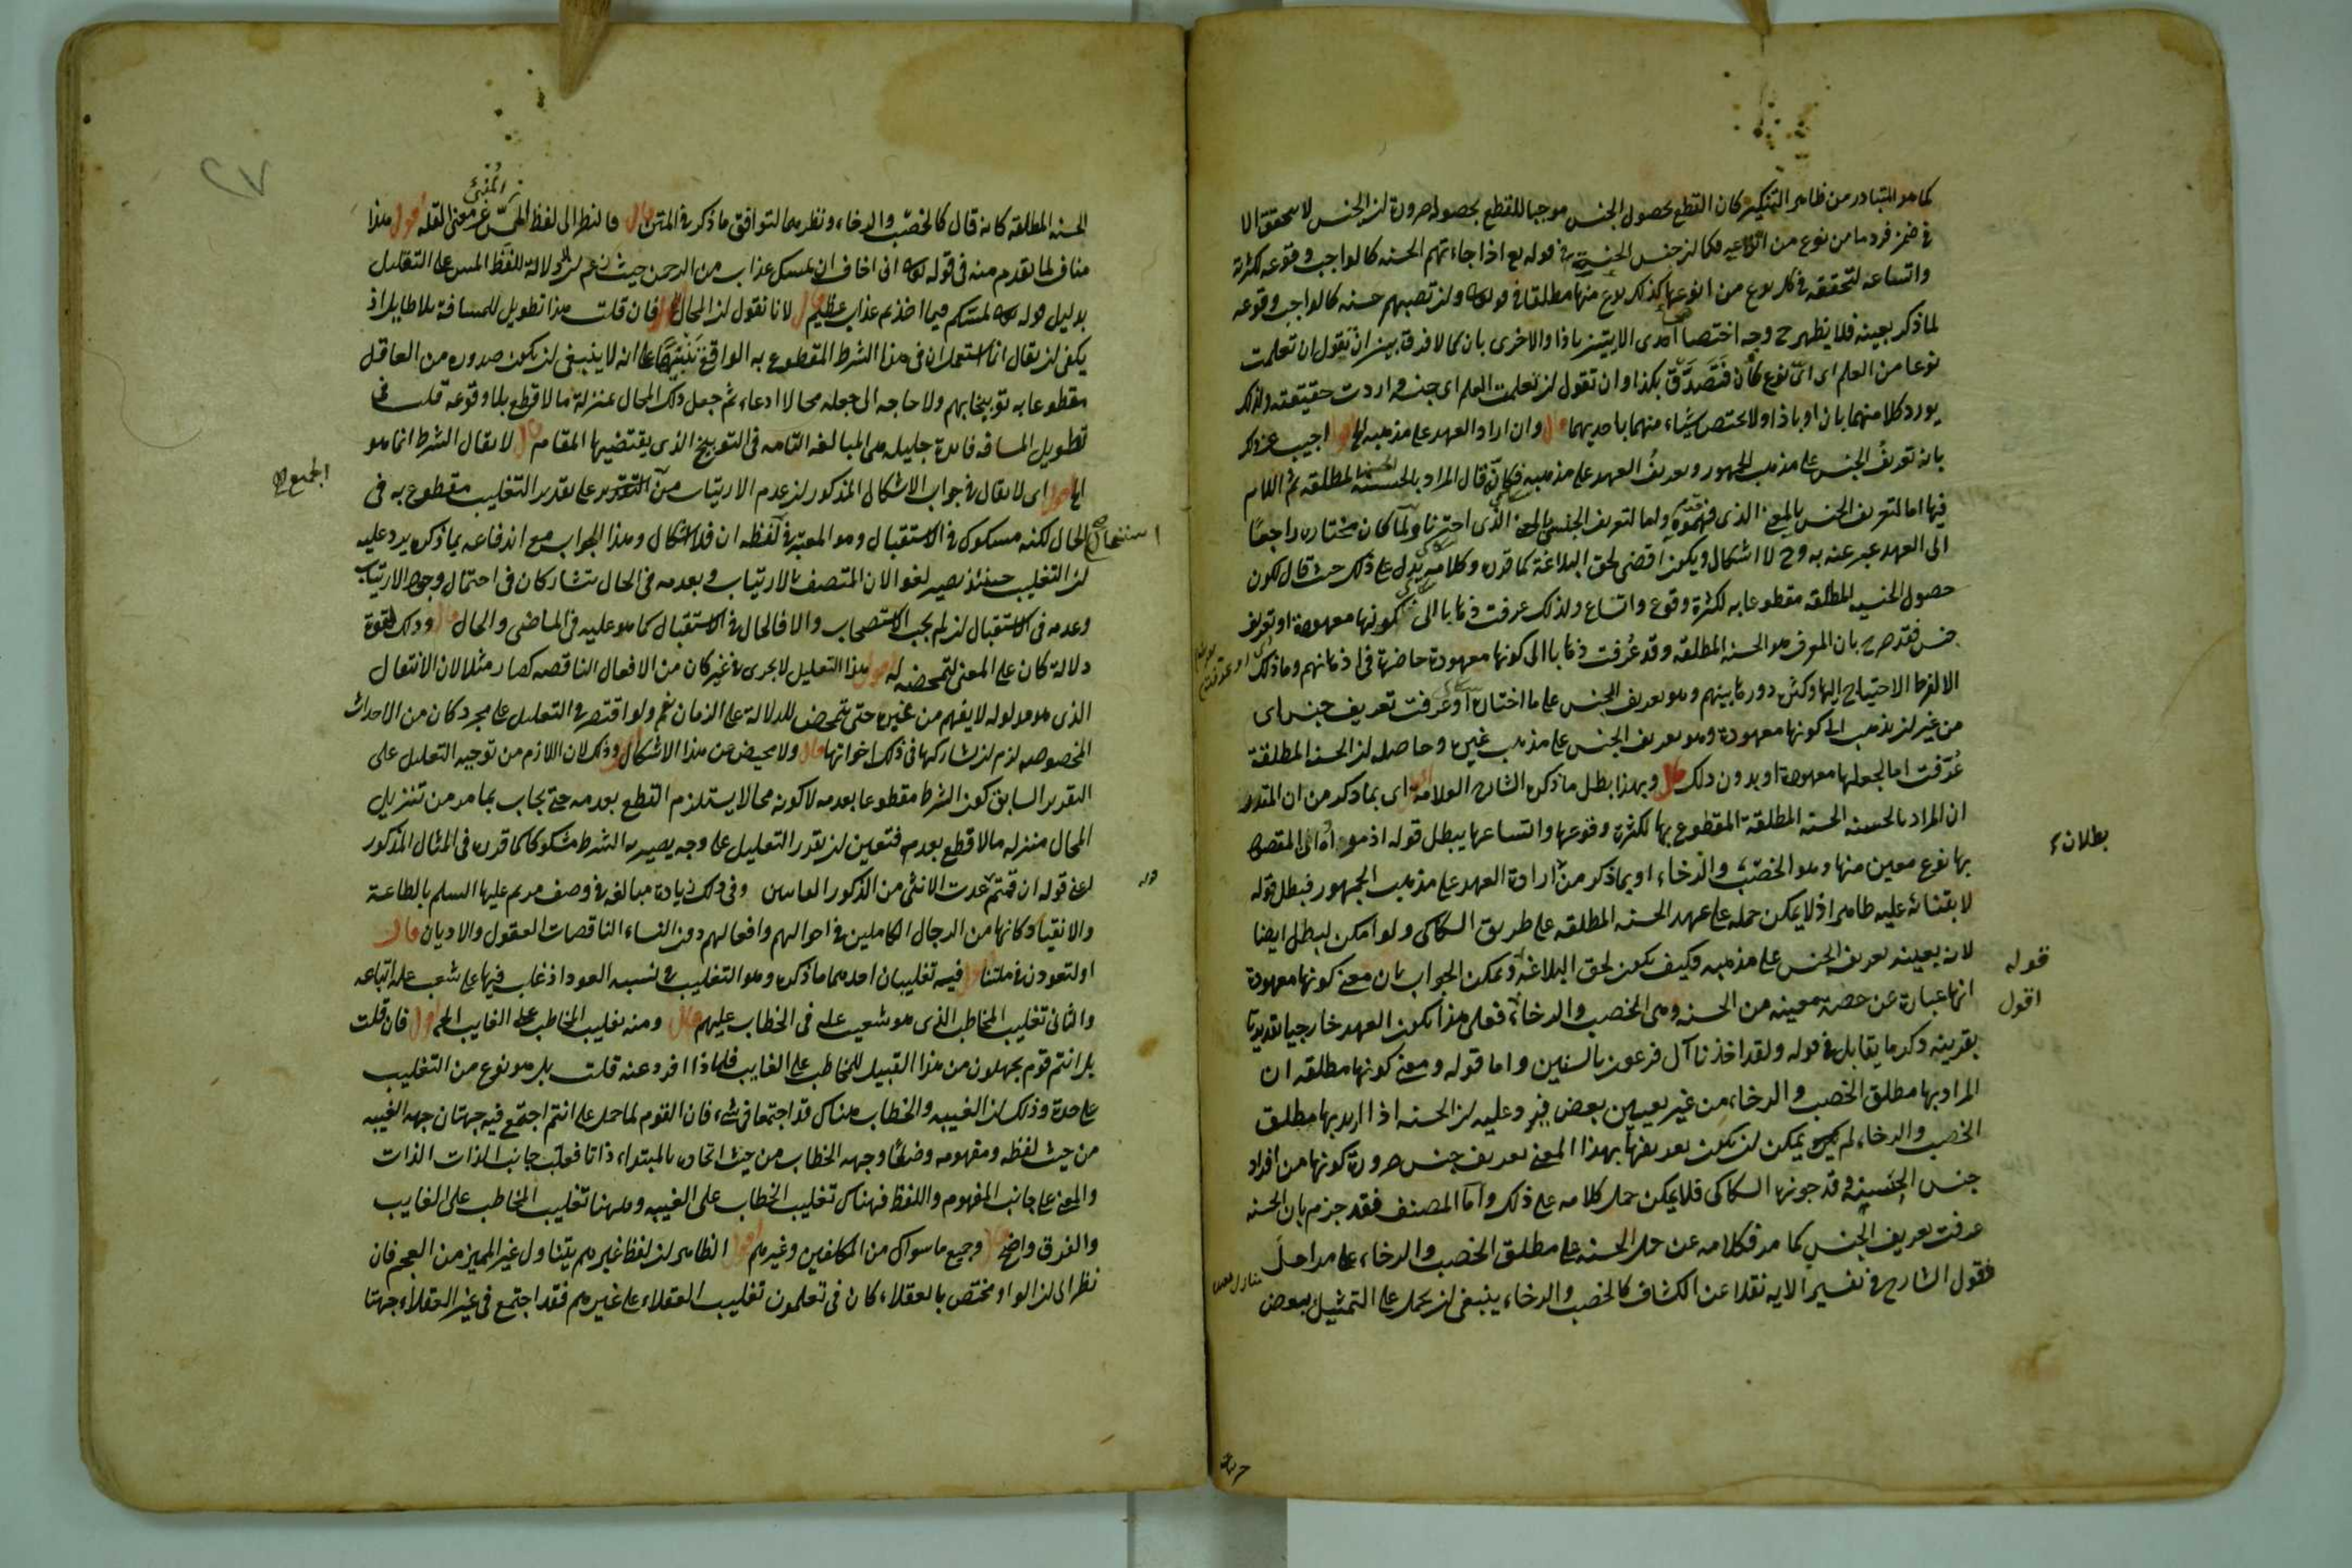 كما هو المتبادر من ظاهر التنكير كان القطع بحصول الجنس موجبا للقطع بحصوله ضرورة لن الجنس لا يتحقق الا
في ضمن فرد ما من نوع من انواعه فكما لن جنس الحسنة في قوله تع اذا جاءتهم الحسنه كالواجب وقوعه لكثرته
واتساعه لتحققه في كل نوع من انواعها كذلك نوع منها مطلقا في قوله ولن تصبهم حسنه كالواجب وقوعه
لما ذكر بعينه فلا يظهر ح وجه اختصاص احدى الايتين باذا والاخرى بان كما لا فرق بين ان تقول ان تعلمت
نوعا من العلم اى اى نوع كان فتصدق بكذا وان تقول لن تعلمت العلم اى جنسه و اردت حقيقته ولذلك
يورد كلا منهما بان او باذا ولا يختص شيء منهما باحديهما قال وان اراد العهد على مذهبه الخ اقول اجيب عن ذلك
بان تعريف الجنس على مذهب الجمهور وتعريف العهد على مذهبه فكانه قال المراد بالحسنة الحسنه المطلقه ثم اللام
فيها اما لتعريف الجنس بالمعنى الذى فهموه واما لتعريف الجنس بالمعنى الذى اخترناه ولما كان مختاره راجعا
الى العهد عبر عنه به وح لا اشكال ويكون اقضى لحق البلاغة كما قرره وكلامه يدل على ذلك حيث قال لكون
حصول الحسنه المطلقه مقطوعا به لكثرة وقوع واتساع ولذلك عرفت ذهابا الى كونها معهودة او تعريف
جنس فقد صرح بان المعرف هو الحسنه المطلقه وقد عرفت ذهابا الى كونها معهودة حاضرة في اذهانهم وما ذلك
الا لفرط الاحتياج اليها وكثرة دورها بينهم وهو تعريف الجنس على ما اختاره او عرفت تعريف جنس اى
من غير لن يذهب الى كونها معهودة وهو تعريف الجنس على مذهب غيره وحاصله لن الحسنه المطلقة
عرفت اما لجعلها معهودة او بدون ذلك قال وبهذا بطل ما ذكره الشارح العلامة اقول اى بما ذكر من ان المقدر
ان المراد بالحسنه الحسنه المطلقة المقطوع بها لكثرة وقوعها واتساعها يبطل قوله اذ هو اى المقصود
بها نوع معين منها وهو الخصب والرخاء او بما ذكر من ارادة العهد على مذهب الجمهور فبطل قوله
لابتنائه عليه ظاهرا اذ لا يمكن حمله على عهد الحسنه المطلقه على طريق السكاكى ولو امكن لبطل ايضا
لانه بعينه تعريف الجنس على مذهبه فكيف يكون لحق البلاغة ويمكن الجواب بان معنى كونها معهودة
انها عبارة عن حصة معينه من الحسنه وهى الخصب والرخاء فعلى هذا يكون العهد خارجيا تقديريا
بقرينه ذكر ما يقابل في قوله ولقد اخذنا آل فرعون بالسنين واما قوله ومعنى كونها مطلقه ان
المراد بها مطلق الخصب والرخاء من غير تعيين بعض فيرد عليه لن الحسنه اذا اريد بها مطلق
الخصب والرخاء لم يمكن لن يكون تعريفها بهذا المعنى تعريف جنس ضرورة كونها من افراد
جنس الحسنه وقد جوزها السكاكى فلا يمكن حمل كلامه على ذلك واما المصنف فقد جزم بان الحسنه
عرفت تعريف الجنس كما مر فكلامه عن حمل الحسنه على مطلق الخصب والرخاء على مراحل
فقول الشارح في تفسير الايه نقلا عن الكشاف كالخصب والرخاء ينبغى لن يحمل على التمثيل ببعض
بطلانه
قوله
اقول
الحسنه المطلقة كانه قال كالخصب والرخاء ونظيرهما لتوافق ما ذكر في المتن قال فالنظر الى لفظ المس المنبئ عن معنى القله اقول هذا
مناف لما تقدم منه في قوله انى اخاف ان يمسك عذاب من الرحمن حيث زعم لن لا دلالة للفظ المس على التقليل
بدليل قوله لمسكم فيما اخذتم عذاب عظيم قال لانا نقول لن المحال اقول فان قلت هذا تطويل للمسافة بلا طايل اذ
يكفى لن يقال انما استعمل ان في هذا الشرط المقطوع به الواقع تنبيها على انه لا ينبغى لن يكون صدوره من العاقل
مقطوعا به توبيخا بهم ولا حاجه الى جعله محالا ادعاء ثم جعل ذلك المحال بمنزلة ما لا قطع بلا وقوعه قلت في
تطويل المسافه فايدة جليله هى المبالغه التامه في التوبيخ الذى يقتضيها المقام قال لا يقال الشرط انما هو
الخ اقول اى لا يقال في جواب الاشكال المذكور لن عدم الارتياب من على تقدير التغليب مقطوع به في
الحال لكنه مشكوك في الاستقبال وهو المعتبر في لفظه ان فلا اشكال وهذا الجواب مع اندفاعه بما ذكره يرد عليه
لن التغليب حينئذ يصير لغوا لان المتصف بالارتياب وبعدمه في الحال يتشاركان في احتمال وجود الارتياب
وعدمه في الاستقبال لن لم يجب الاستصحاب والا فالحال في الاستقبال كما هو عليه في الماضى والحال قال وذلك لقوة
دلالة كان على المعنى لتمحضه له اقول هذا التعليل لا يجرى في غير كان من الافعال الناقصه كصار مثلا لان الانتقال
الذى هو مدلوله لا يفهم من غيره حتى يتمحض للدلالة على الزمان نعم ولو اقتصر في التعليل على مجرد كان من الاحداث
المخصوصه لزم لن تشاركها في ذلك اخواتها قال ولا محيص عن هذا الاشكال اقول وذلك لان اللازم من توجيه التعليل على
التقرير السابق كون الشرط مقطوعا بعدمه لا كونه محالا يستلزم القطع بعدمه حتى يجاب بما مر من تنزيل
المحال منزله ما لا قطع بعدمه فتعين لن تقرر التعليل على وجه يصير به الشرط مشكوكا كما قرره في المثال المذكور
اعنى قوله ان قمتم عدت الانثى من الذكور وفى ذلك زيادة مبالغه في وصف مريم عليها السلم بالطاعة
والانقياد كانها من الرجال الكاملين في احوالهم وافعالهم دون النساء الناقصات العقول والاديان قال
او لتعودن في ملتنا اقول فيه تغليبان احدهما ما ذكره وهو التغليب في نسبه العود اذ غلب فيها على شعيب عله اتباعه
والثانى تغليب المخاطب الذى هو شعيب على في الخطاب عليهم قال ومنه تغليب المخاطب على الغايب الخ اقول فان قلت
بل انتم قوم تجهلون من هذا القبيل للمخاطب على الغايب فلماذا افرد عنه قلت بل هو نوع من التغليب
على حدة وذلك لن الغيبه والخطاب هناك قد اجتمعا في شيء فان القوم لما حمل على انتم اجتمع فيه جهتان جهه الغيبه
من حيث لفظه ومفهومه وضعا وجهه الخطاب من حيث اتحاده بالمبتداء ذاتا فغلب جانب الذات الذات
والمعنى على جانب المفهوم واللفظ فهناك تغليب الخطاب على الغيبه وههنا تغليب المخاطب على الغايب
والفرق واضح قال وجميع ما سواك من المكلفين وغيرهم اقول الظاهر لن لفظ غيرهم يتناول غير المميز من العجم فان
نظر الى لن الواو مختص بالعقلاء كان في تعلمون تغليب العقلاء على غيرهم فقد اجتمع في غير العقلاء جهتا